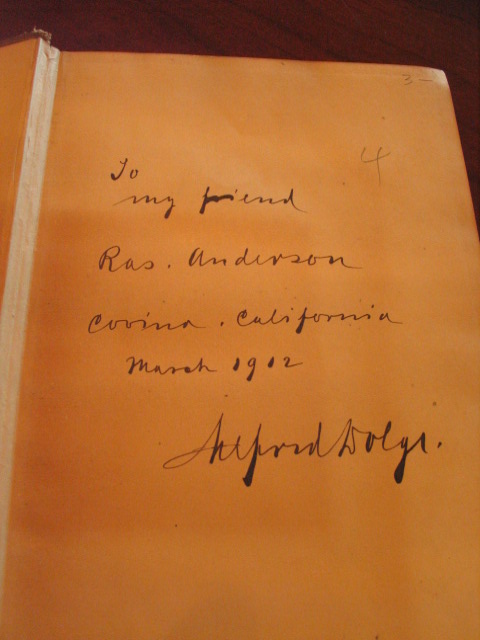 3-
4
To
my friend
Ras. Anderson
Covina. California
March 1912
Alfred Dolge.